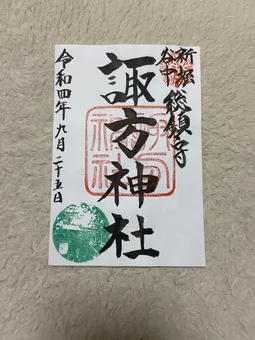 新堀
谷中
総鎮守
諏方神社
令和四年九月二十五日